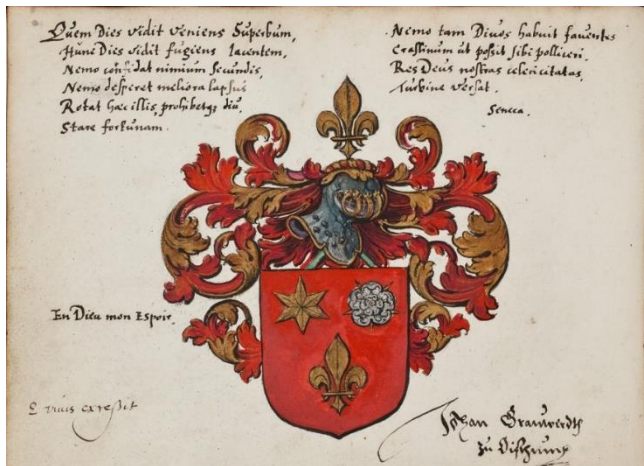 Quem Dies vidit veniens Superbum,
Hunc Dies vidit fugiens Iacentem,
Nemo confidat nimium secundis,
Nemo desperet meliora lapsus
Rotat hæc illis, prohibetq; diu
Stare fortunam.
Nemo tam Diuos habuit fauentes
Crastinum ut possit sibi polliceri.
Res Deus nostras celeri citatas
turbine versat.
Seneca.
En Dieu mon Espoir.
Johan
zu